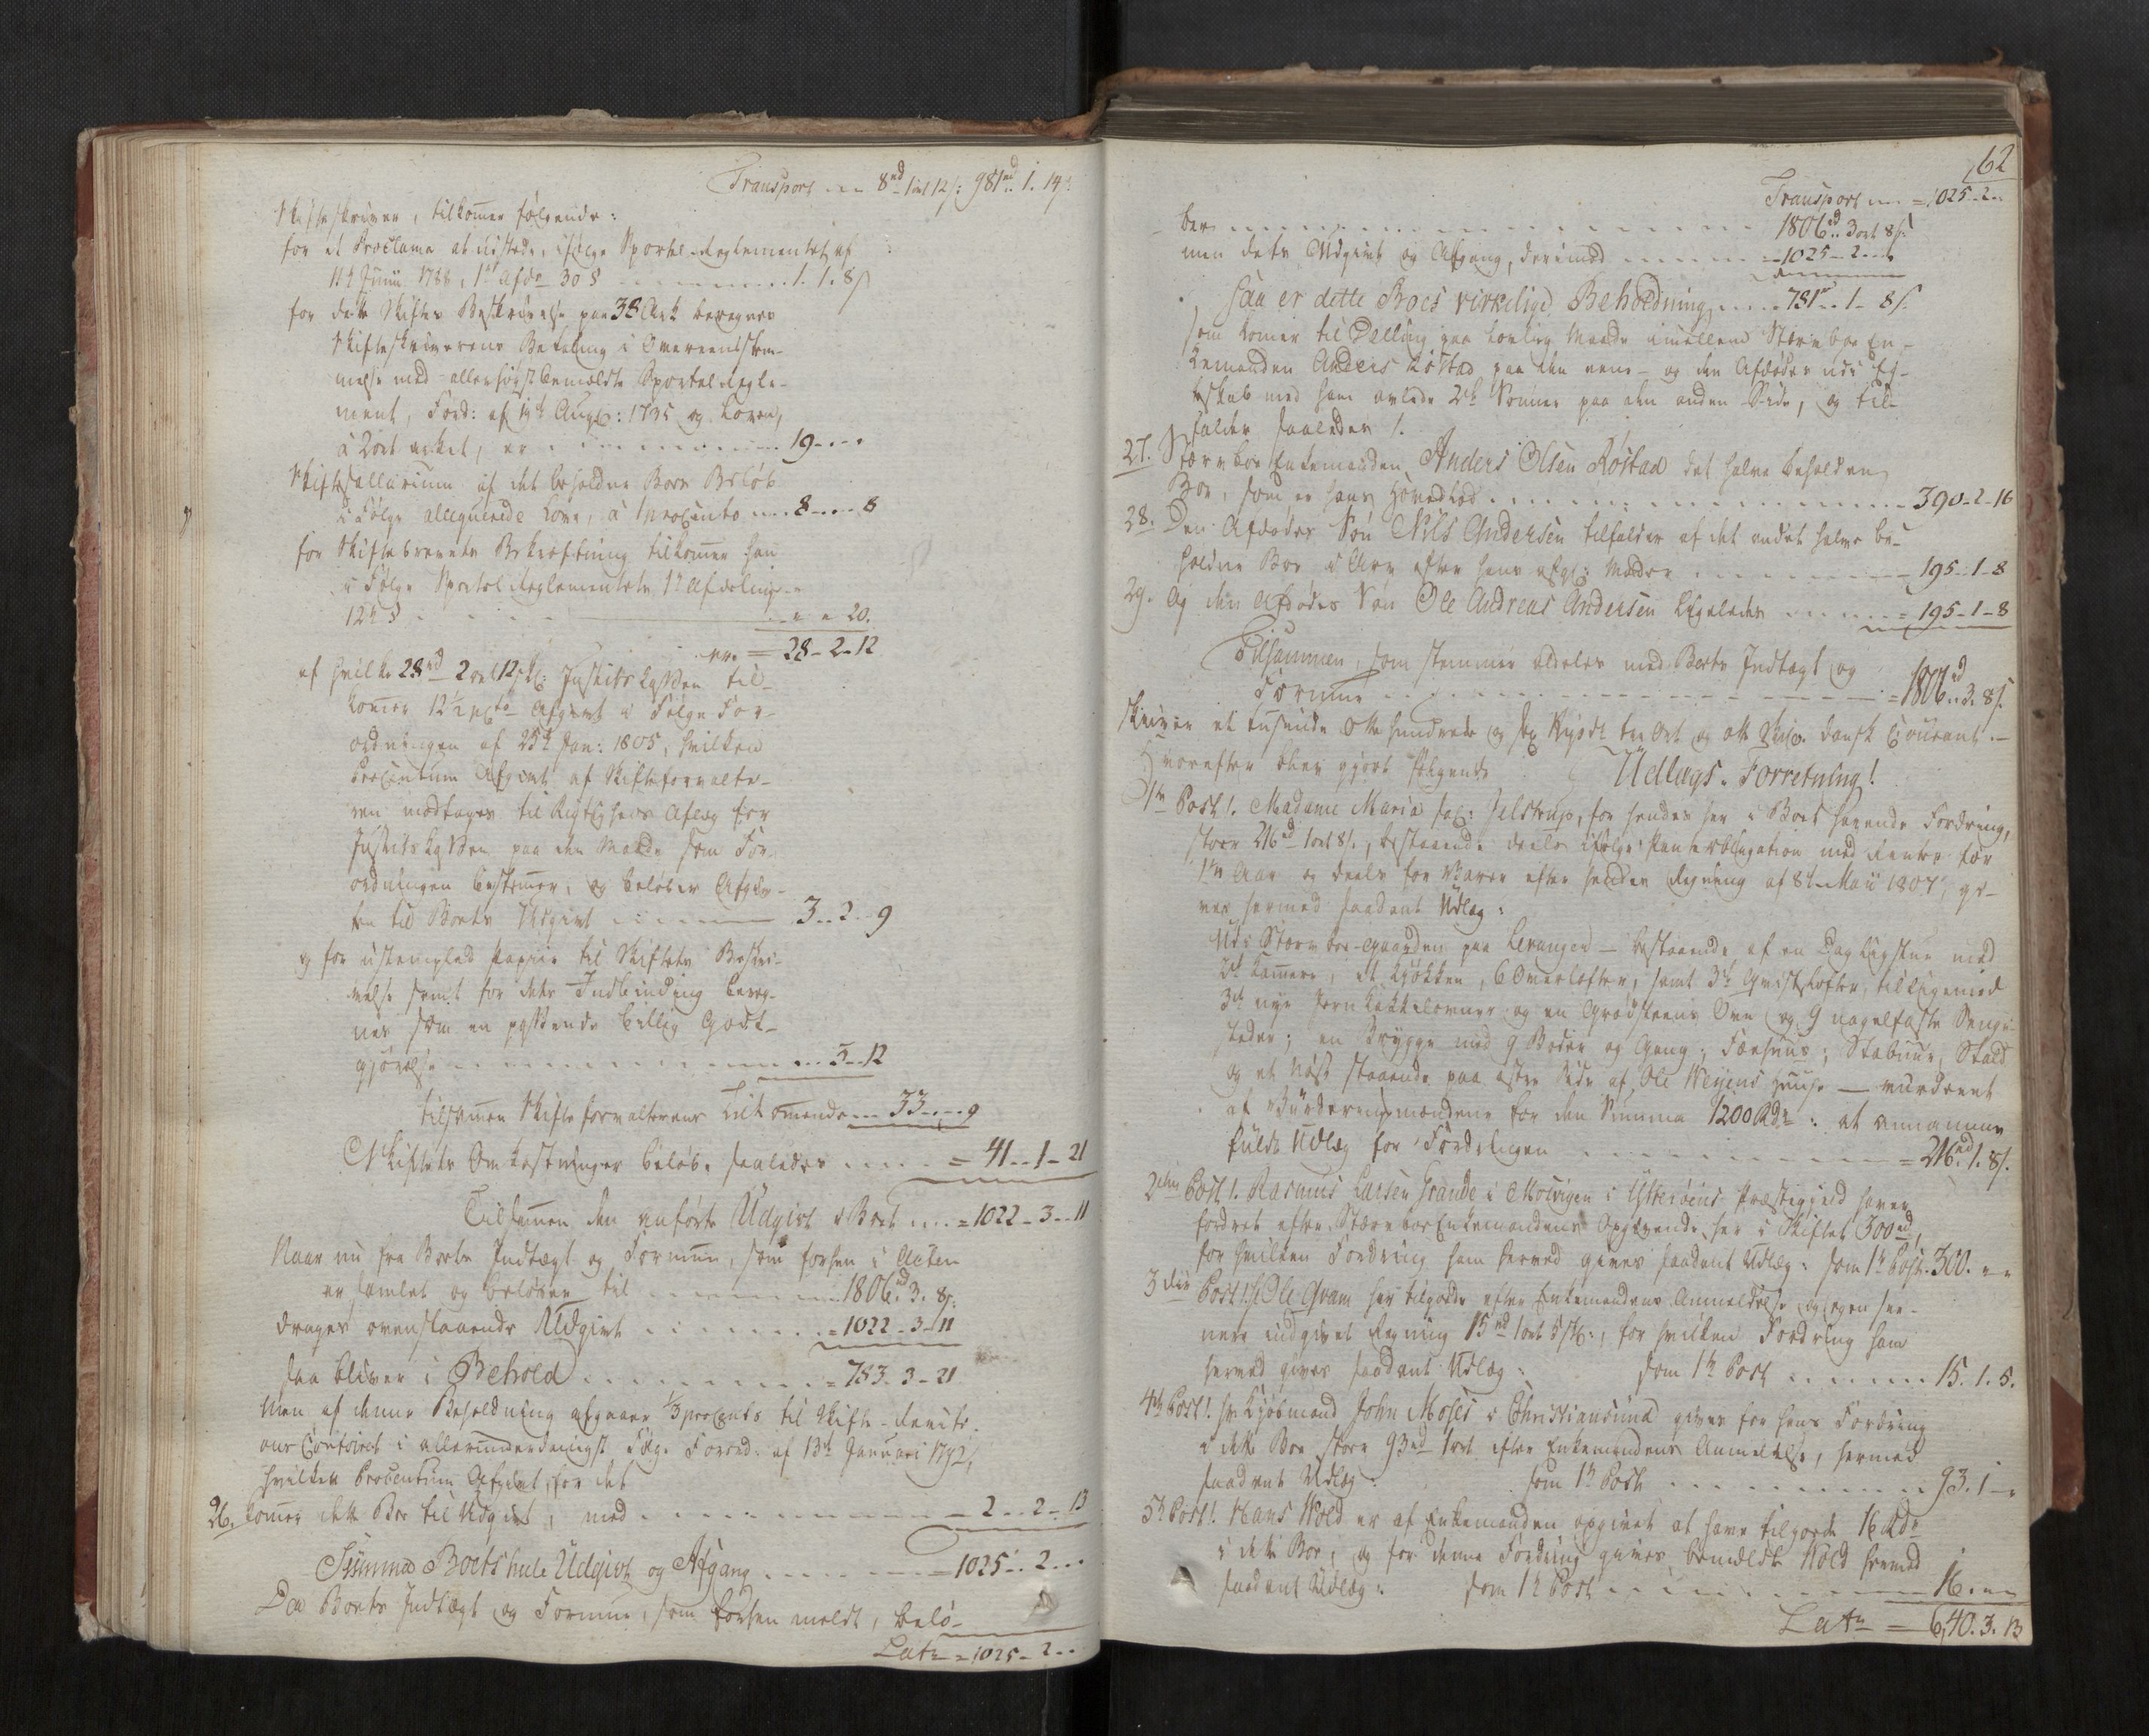 Transport --- 8rd 1ort 12s: 981rd 1. 14s
Skifteskriver, tilkommer følgende:
for et Proclama at udstede, ifølge Sportel-Reglementet af
11te Junii 1788, 1te Afdn 30 § ---- 1. 1. 8s
for dette Skiftes Beskrivelse paa 38 Ark beregnes
Skifteskriverens Betaling i Overeensstem-
melse med allerhøyst bemældte Sportel-Regle-
ment, Ford: af 19de Augs: 1735 og Loven,
a 2ort arket, er ---- 19 - - -
Skiftesallarium af det beholdne Boes Beløb
i Følge alleguerede Lov, a 1 procento --- 8 - - 8
for Skiftebrevets Bekræftning tilkommer han
i Følge Sportel-Reglementets 1te Afdeling
12te § ---- " " 20.
er = 28 - 2 - 12
af hvilke 28rd 2ort 12sk: Justits Kassen til-
kommer 12½ pcto Afgivt i Følge For-
ordningen af 25de Jan: 1805, hvilken
Procentum Afgivt af Skifteforvalte-
ren modtages til Rigtigheds Aflæg for
Justits Kassen paa den Maade som For-
ordningen bestemmer, og beløber Afgiv-
ten til Boets Udgivt ---- 3 - 2 - 9
og for ustemplad Papiir til Skiftets Beskri-
velse samt for dets Indbinding bereg-
nes som en passende billig Godt-
gjørelse ---- 3 - 12
tilsammen Skifteforvalterens Tilkommende --- 33 - - 9
Skiftets Omkostninger beløbe saaledes .... = 41 - 1 - 21
Tilsammen den anførte Udgivt i Boet .... = 1022 - 3 - 11
Naar nu fra Boets Indtægt og Formue, som forhen i Acten
er samlet og beløber til ---- 1806rd 3. 8s:
drages ovenstaaende Udgivt .... = 1022 - 3 - 11
saa bliver i Behold .... = 783 - 3 - 21
Men af denne Beholdning afgaaer 1/3 procents til Skifte-Revits.
ons Contoiret i allerunderdanigst Følge Forord: af 13de Januari 1792,
hvilken Procentum Afgivt, for det
26. kommer dette Boe til Udgivt, med ---- 2 - 2 - 13
Summa Boets hele Udgivt og Afgang ---- = 1025 - 2 - -
Da Boets Indtægt og Formue, som forhen meldt, belø-
Lats = 1025 - 2 - -
62
Transport --- = 1025 - 2 - -
ber ---- 1806rd 3ort 8s:
men dets Udgivt og Afgang, derimod ---- = 1025 - 2 - -
Saa er dette Boes virkelige Beholdning ---- 781rd 1 - 8s.
som kommer til Deeling paa lovlig Maade imellem Stervboe En-
kemanden Anders Røstad paa den eene - og den Afdødes udi Eg-
teskab med ham avlede 2de Sønner paa den anden Side, og til-
falder saaledes!.
27. Stervboe Enkemanden Anders Olsen Røstad det halve beholden
Boe, som er hans Hovedlod .... 390 - 2 - 16
28. Den Afdødes Søn Nils Andersen tilfalder af det andet halve be-
holdne Boe i Arv efter hans afg: Moder .... 195 - 1 - 8
29. Og den Afdødes Søn Ole Andreas Andersen ligeledes .... = 195 - 1 - 8
Tilsammen, som stemmer aldeles med Boets Indtægt og
Formue .... = 1806rd 3. 8s.
skriver et tusinde otte hundrede og sex Rigsdr tre Ort og otte Skil. dansk Courant. -
Hvorefter blev gjort følgende Udlægs-Forretning!
1te Post!. Madame Maria sal: Jelstrup, for hendes her i Boet havende Fordring,
stoer 216rd 1ort 8s., bestaaende deels ifølge Pante obligation med Renter for
1te Aar og deels for Varer efter hendes Regning af 8de Maii 1807, gi-
ves hermed saadant Udlæg:
Udi Stervboe-gaarden paa Levanger - bestaaende af en Dagligstue med
2de Kammere, et Kjøkken, 6 Overlofter, samt 3de Qvistlofter, tilligemed
3de nye Jern Kakkelovner og en Grødsteens Ovn og 9 nagelfaste Senge-
steder; en Brygge med 9 Boder og Gang; Fæehuus; Stabuur; Stald
og et Nøst staaende paa østre Side af Ole Weyens Huuse - vurderet
af Vurderingsmændene for den Summa 1200 Rdr: at annamme
fuldt Udlæg for Fordringen .... = 216rd 1. 8s.
2den Post!. Rasmus Larsen Grande i Mosvigen i Ytterøens Præstegield haver
fordret efter Stervboe Enkemandens Opgivende her i Skiftet 300rd,
for hvilken Fordring ham herved gives saadant Udlæg: som 1te Post. 300. " "
3die Post! H Ole Gram har tilgode efter Enkemandens Anmeldelse og egen se-
nere indgivet Regning 15rd 1ort 5sk:, for hvilken Fordring ham
herved gives saadant Udlæg: som 1te Post .... 15. 1. 5.
4de Post!. Hr Kjøbmand John Moses i Christiansund gives for hans Fordring
i dette Boe, stoer 93rd 1ort efter Enkemandens Anmeldelse, hermed
saadant Udlæg: som 1te Post .... 93. 1 - "
5te Post!. Hans Wold er af Enkemanden opgivet at have tilgode 16 Rdr
i dette Boe, og for denne Fordring gives bemeldte Wold herved
saadant Udlæg: som 1te Post .... 16. " "
Lats = 640. 3. 13